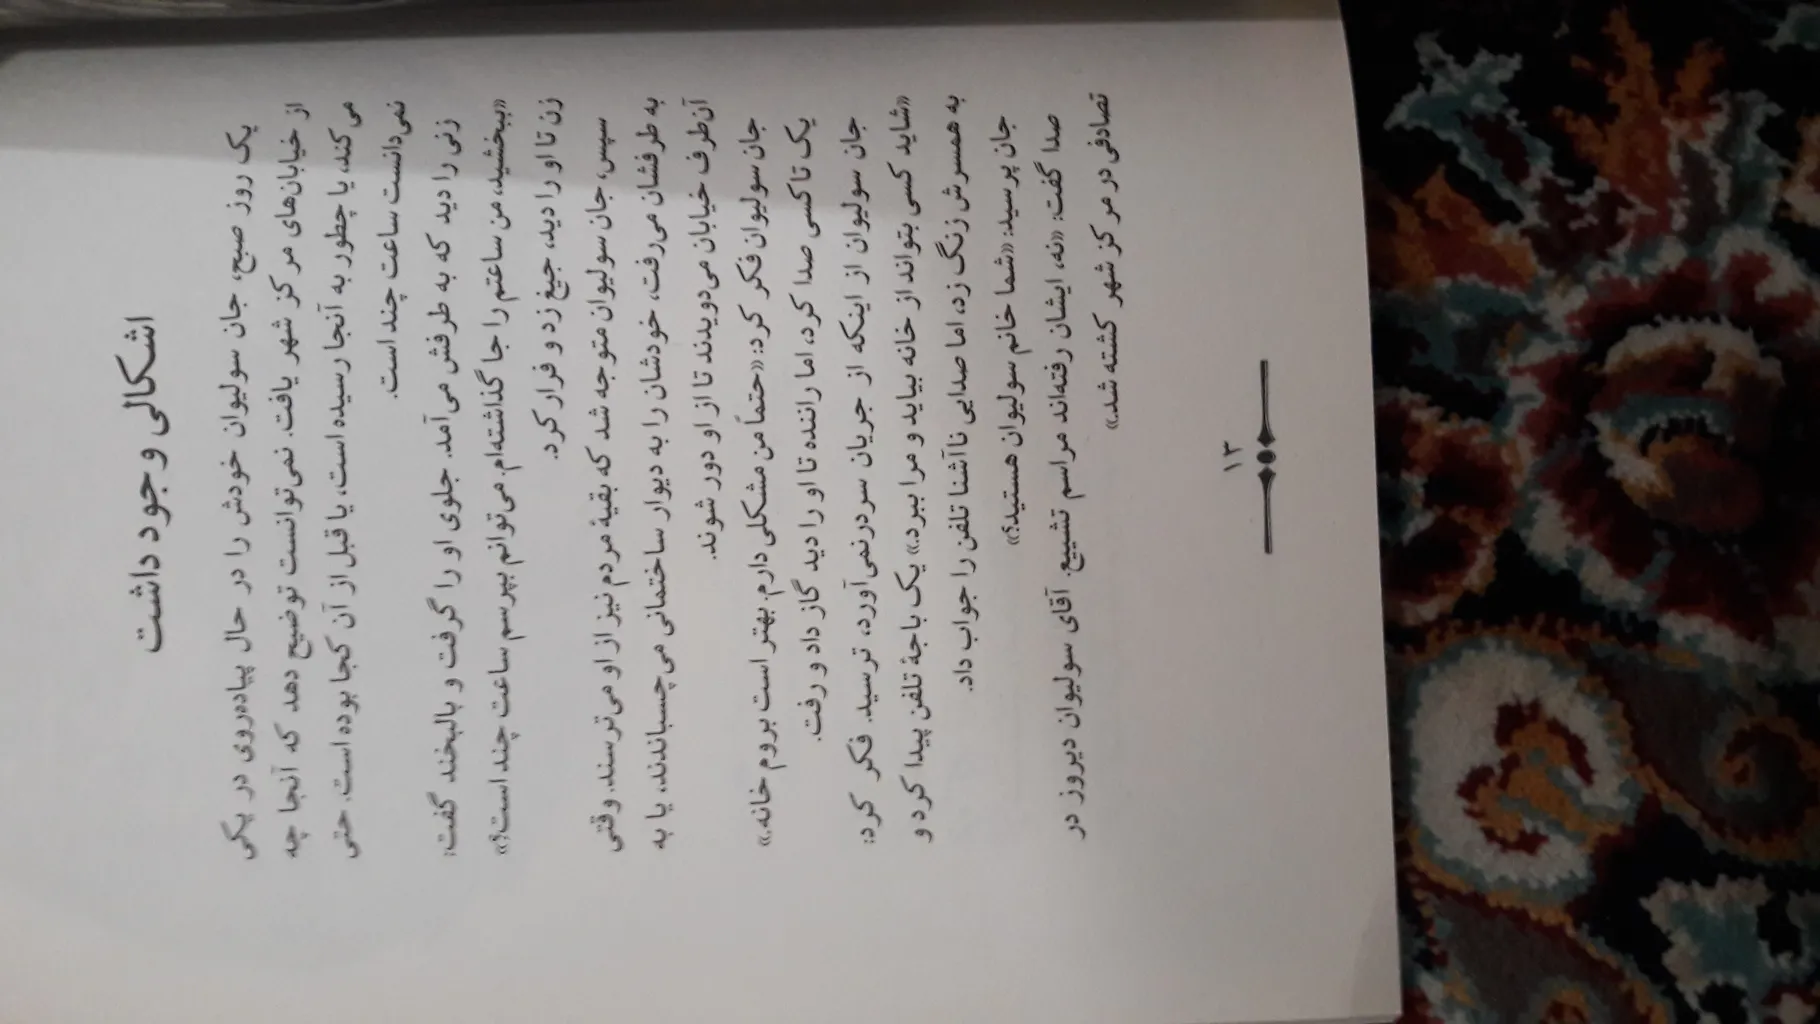 اشکالی وجود داشت
یک روز صبح، جان سولیوان خودش را در حال پیاده‌روی در یکی
از خیابان‌های مرکز شهر یافت. نمی‌توانست توضیح دهد که آنجا چه
می‌کند، یا چطور به آنجا رسیده است، یا قبل از آن کجا بوده است. حتی
نمی‌دانست ساعت چند است.
زنی را دید که به طرفش می‌آمد. جلوی او را گرفت و بالبخند گفت:
«ببخشید، من ساعتم را جا گذاشته‌ام. می‌توانم بپرسم ساعت چند است؟»
زن تا او را دید، جیغ زد و فرار کرد.
سپس، جان سولیوان متوجه شد که بقیۀ مردم نیز از او می‌ترسند. وقتی
به طرفشان می‌رفت، خودشان را به دیوار ساختمانی می‌چسباندند، یا به
آن‌طرف خیابان می‌دویدند تا از او دور شوند.
جان سولیوان فکر کرد: «حتماً من مشکلی دارم. بهتر است بروم خانه.»
یک تاکسی صدا کرد، اما راننده تا او را دید گاز داد و رفت.
جان سولیوان از اینکه از جریان سردرنمی‌آورد، ترسید. فکر کرد:
«شاید کسی بتواند از خانه بیاید و مرا ببرد.» یک باجۀ تلفن پیدا کرد و
به همسرش زنگ زد، اما صدایی ناآشنا تلفن را جواب داد.
جان پرسید: «شما خانم سولیوان هستید؟»
صدا گفت: «نه، ایشان رفته‌اند مراسم تشییع. آقای سولیوان دیروز در
تصادفی در مرکز شهر کشته شد.»
۱۳